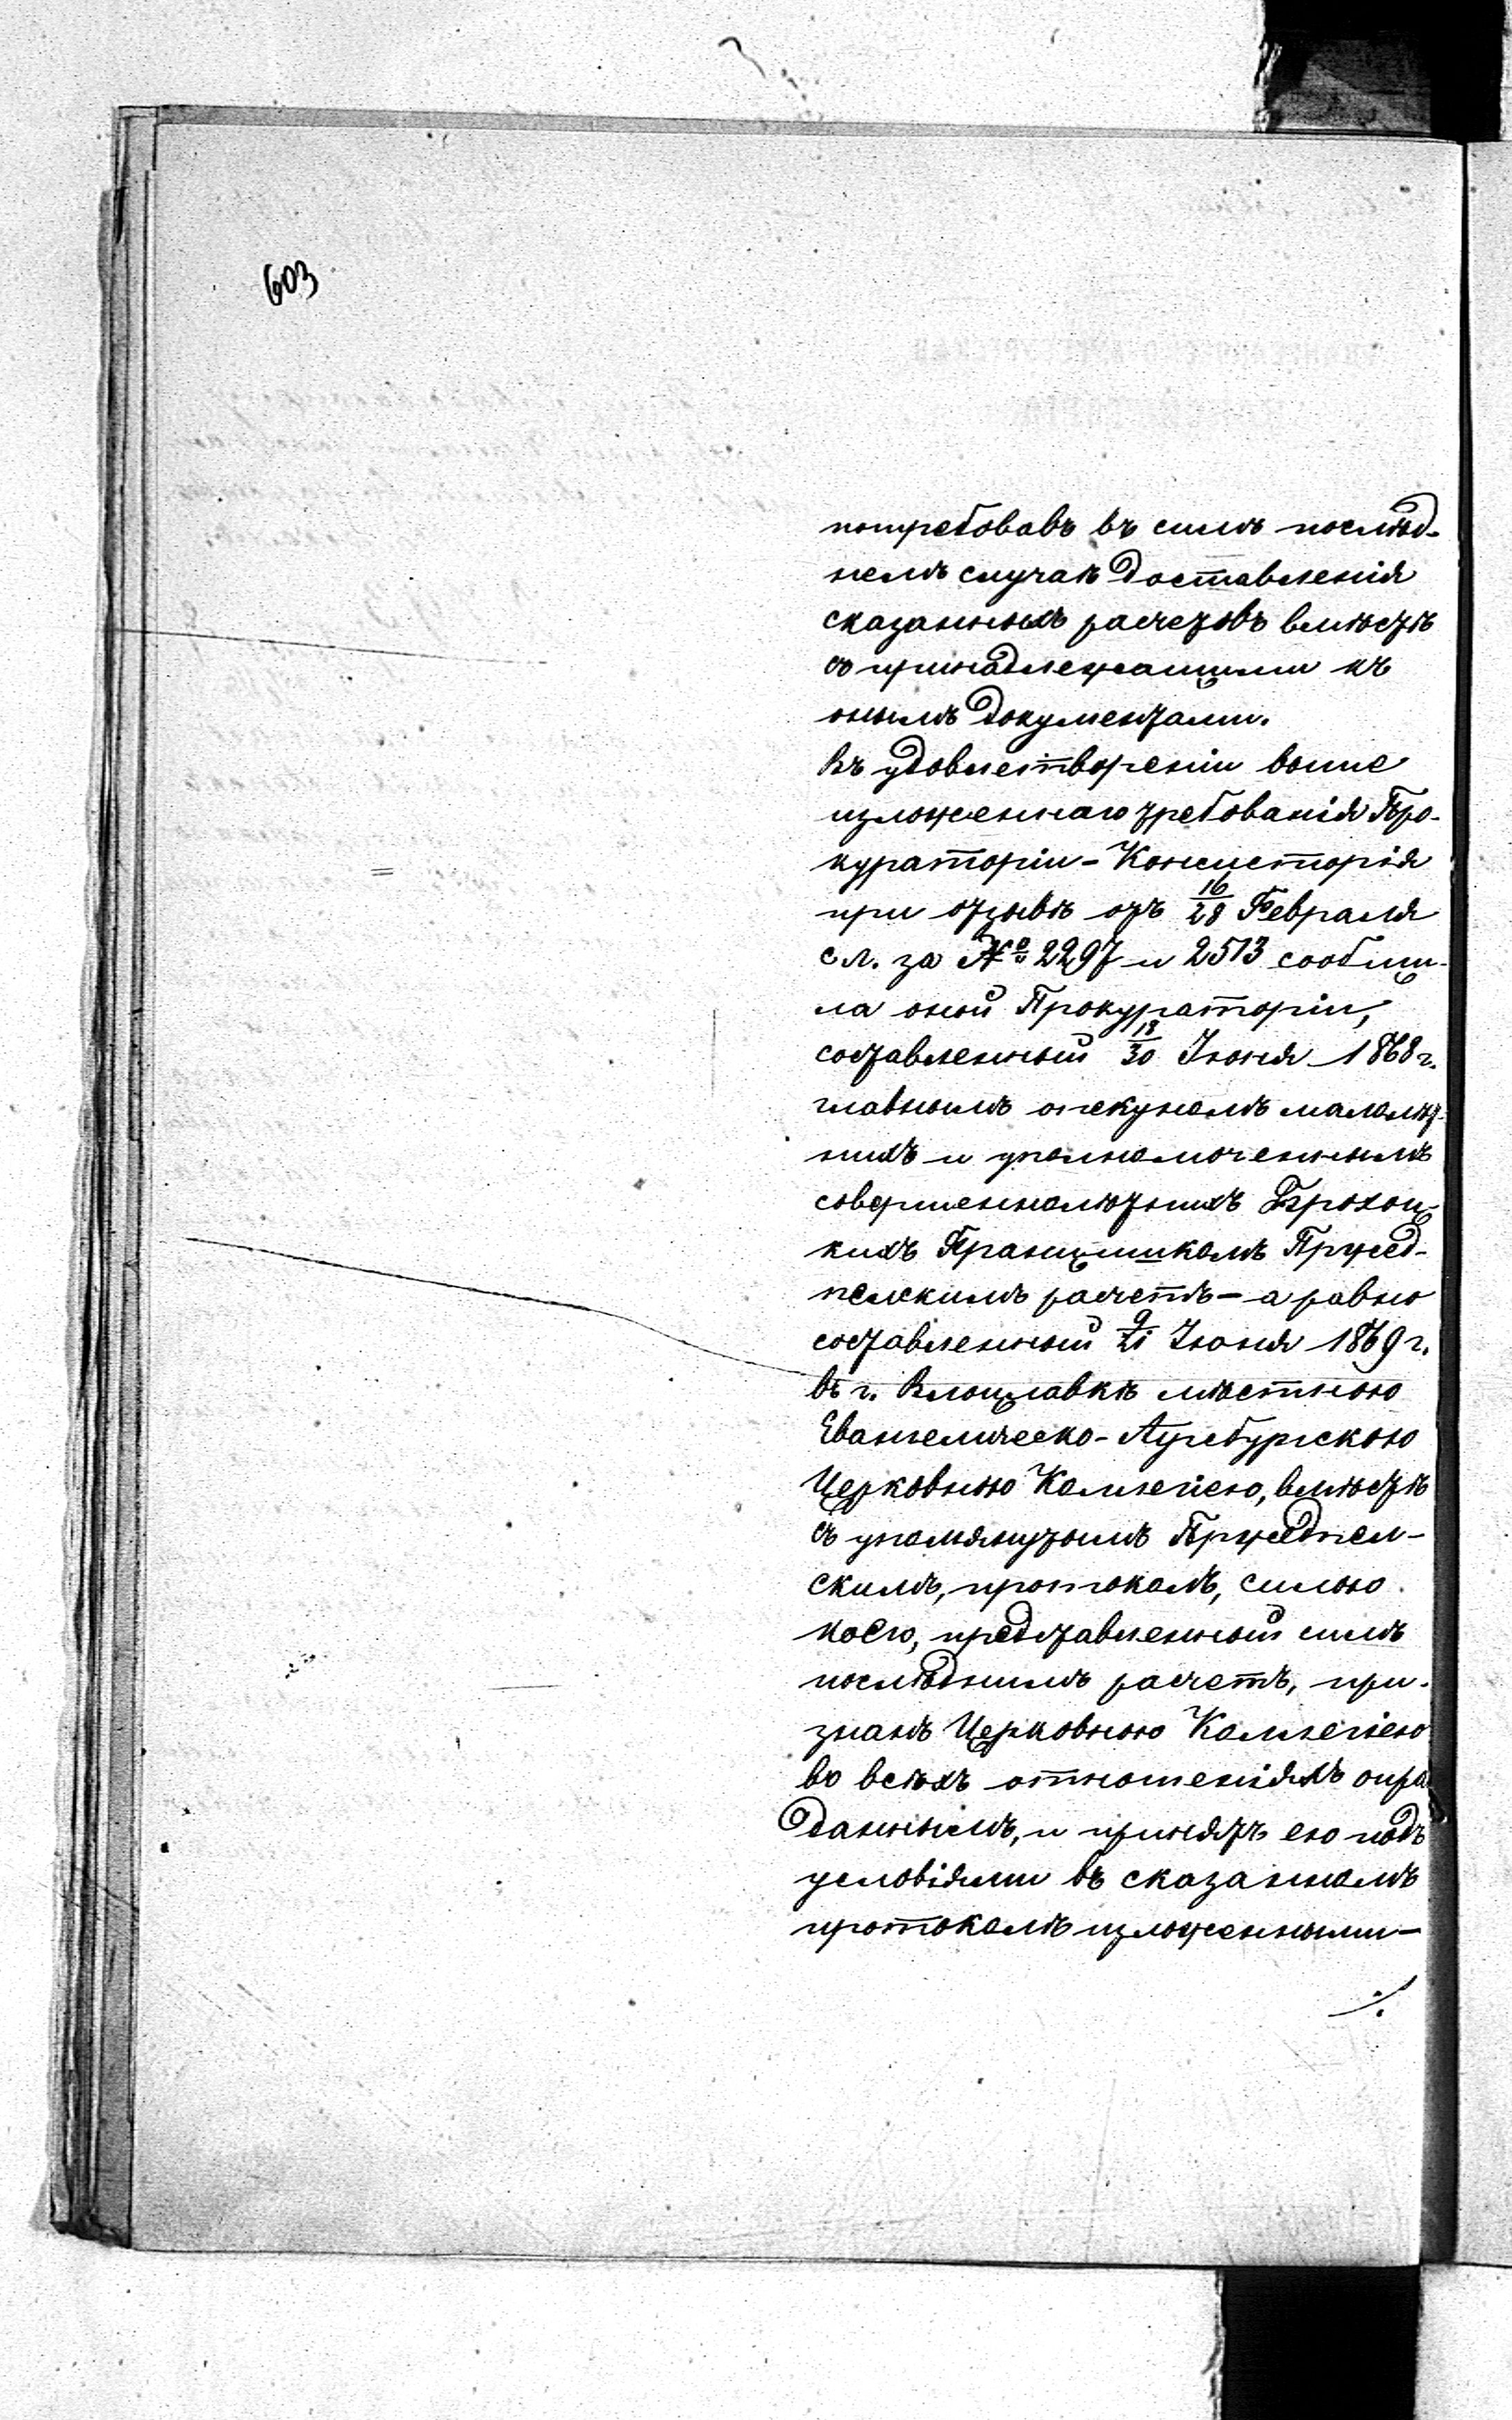 603
потребовавъ въ семъ послѣд-
немъ случаѣ доставленія
сказанныхъ расчетовъ вмѣстѣ
съ принадлежащими къ
онымъ документами.
Въ удовлетвореніи выше
изложеннаго требованія Про-
кураторіи - Консисторія
при отзывѣ отъ 16/28 Февраля
с. г. за № 2297 и 2513 сообщи-
ла оной Прокураторіи,
составленный 18/30 Іюня 1868 г.
главнымъ опекуномъ малолѣт-
нихъ и уполномоченнымъ
совершеннолѣтнихъ Брохоц-
кихъ Францишкомъ Пржед-
пелскимъ расчетъ - а равно
составленный 9/21 Іюня 1869 г.
въ г. Влоцлавкѣ мѣстною
Евангелическо-Аугсбургскою
Церковною Коллегіею, вмѣстѣ
съ упомянутымъ Пржедпел-
скимъ, протоколъ, силою
коего, представленный симъ
послѣднимъ расчетъ, при-
знанъ Церковною Коллегіею
во всѣхъ отношеніяхъ оправ
даннымъ, и принятъ ею подъ
условіями въ сказанномъ
протоколѣ изложенными -
./.